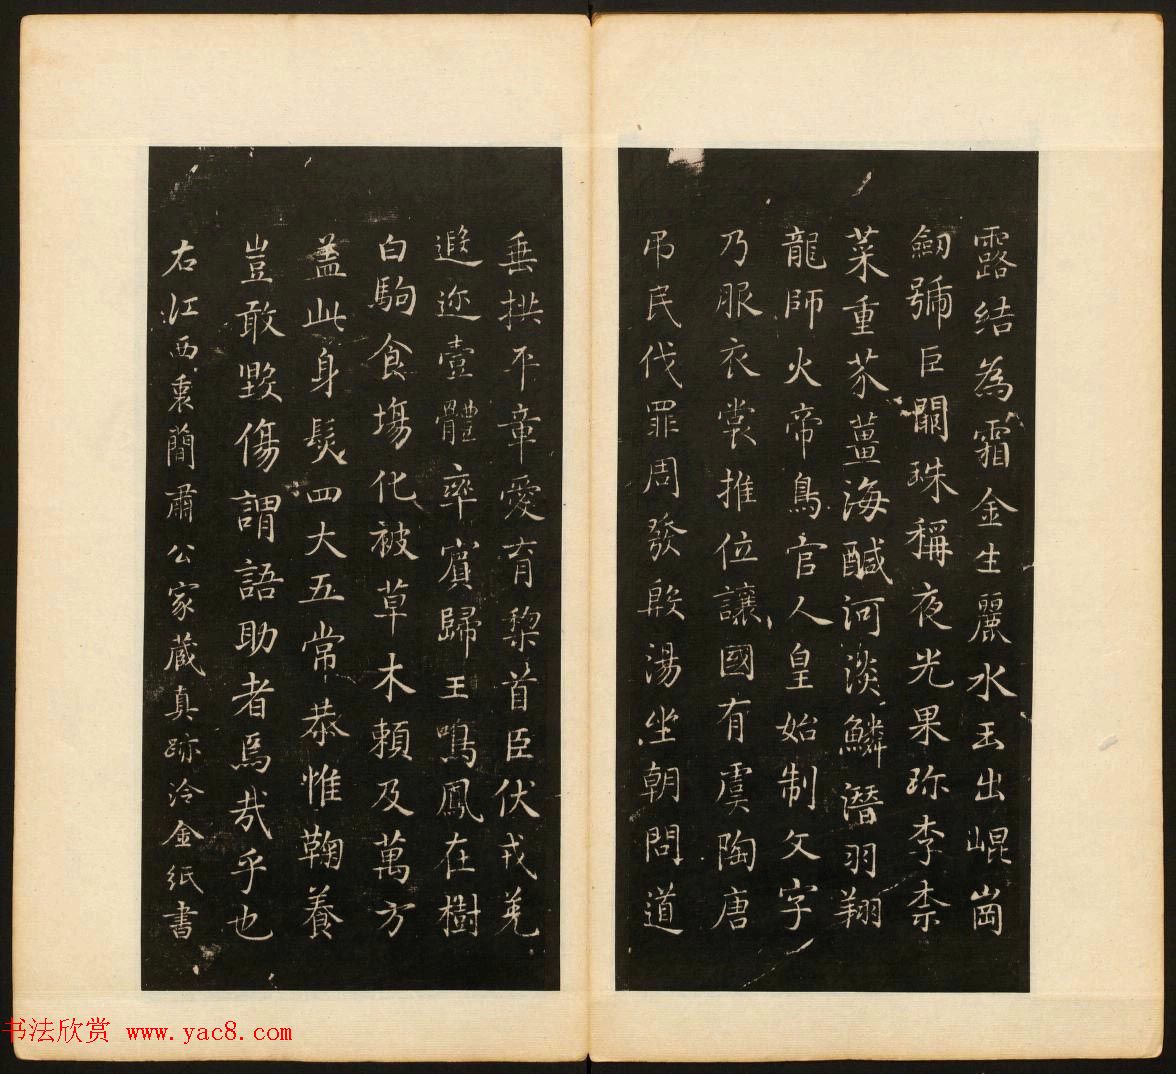 露結為霜金生麗水玉出崐崗
劒號巨闕珠稱夜光果珎李柰
菜重芥薑海醎河淡鱗潛羽翔
龍師火帝鳥官人皇始制文字
乃服衣裳推位讓國有虞陶唐
吊民伐罪周發殷湯坐朝問道
垂拱平章愛育黎首臣伏戎羌
遐迩壹體率賓歸王鳴鳳在樹
白駒食場化被草木頼及萬方
盖此身髮四大五常恭惟鞠養
豈敢毀傷謂語助者焉哉乎也
右江西袁蘭肅公家藏真跡泠金紙書
书法欣赏 www.yac8.com